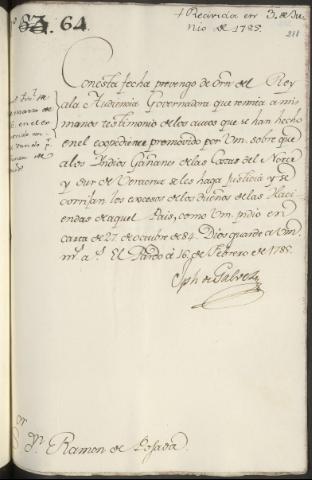 64.
+ Recivida en 3. de Ju-
nio de 1785.
211
Con esta fecha prevengo de orn del Rey
ala Audiencia Governadora que remita a mis
manos testimonio de los autos que se han hecho
en el expediente promovido por Vm. sobre que
a los Yndios Gañanes de las Costas del Norte
y Sur de Veracruz se les haga justicia y se
corrijan los excesos de los dueños de las Haci-
endas de aquel Pais, como Vm. pidio en
carta de 27. de octubre de 84. Dios guarde a Vm.
m.s a.s El Pardo à 16. de Febrero de 1785.
Jph de Galvez
S.or D.n Ramon de Posada.